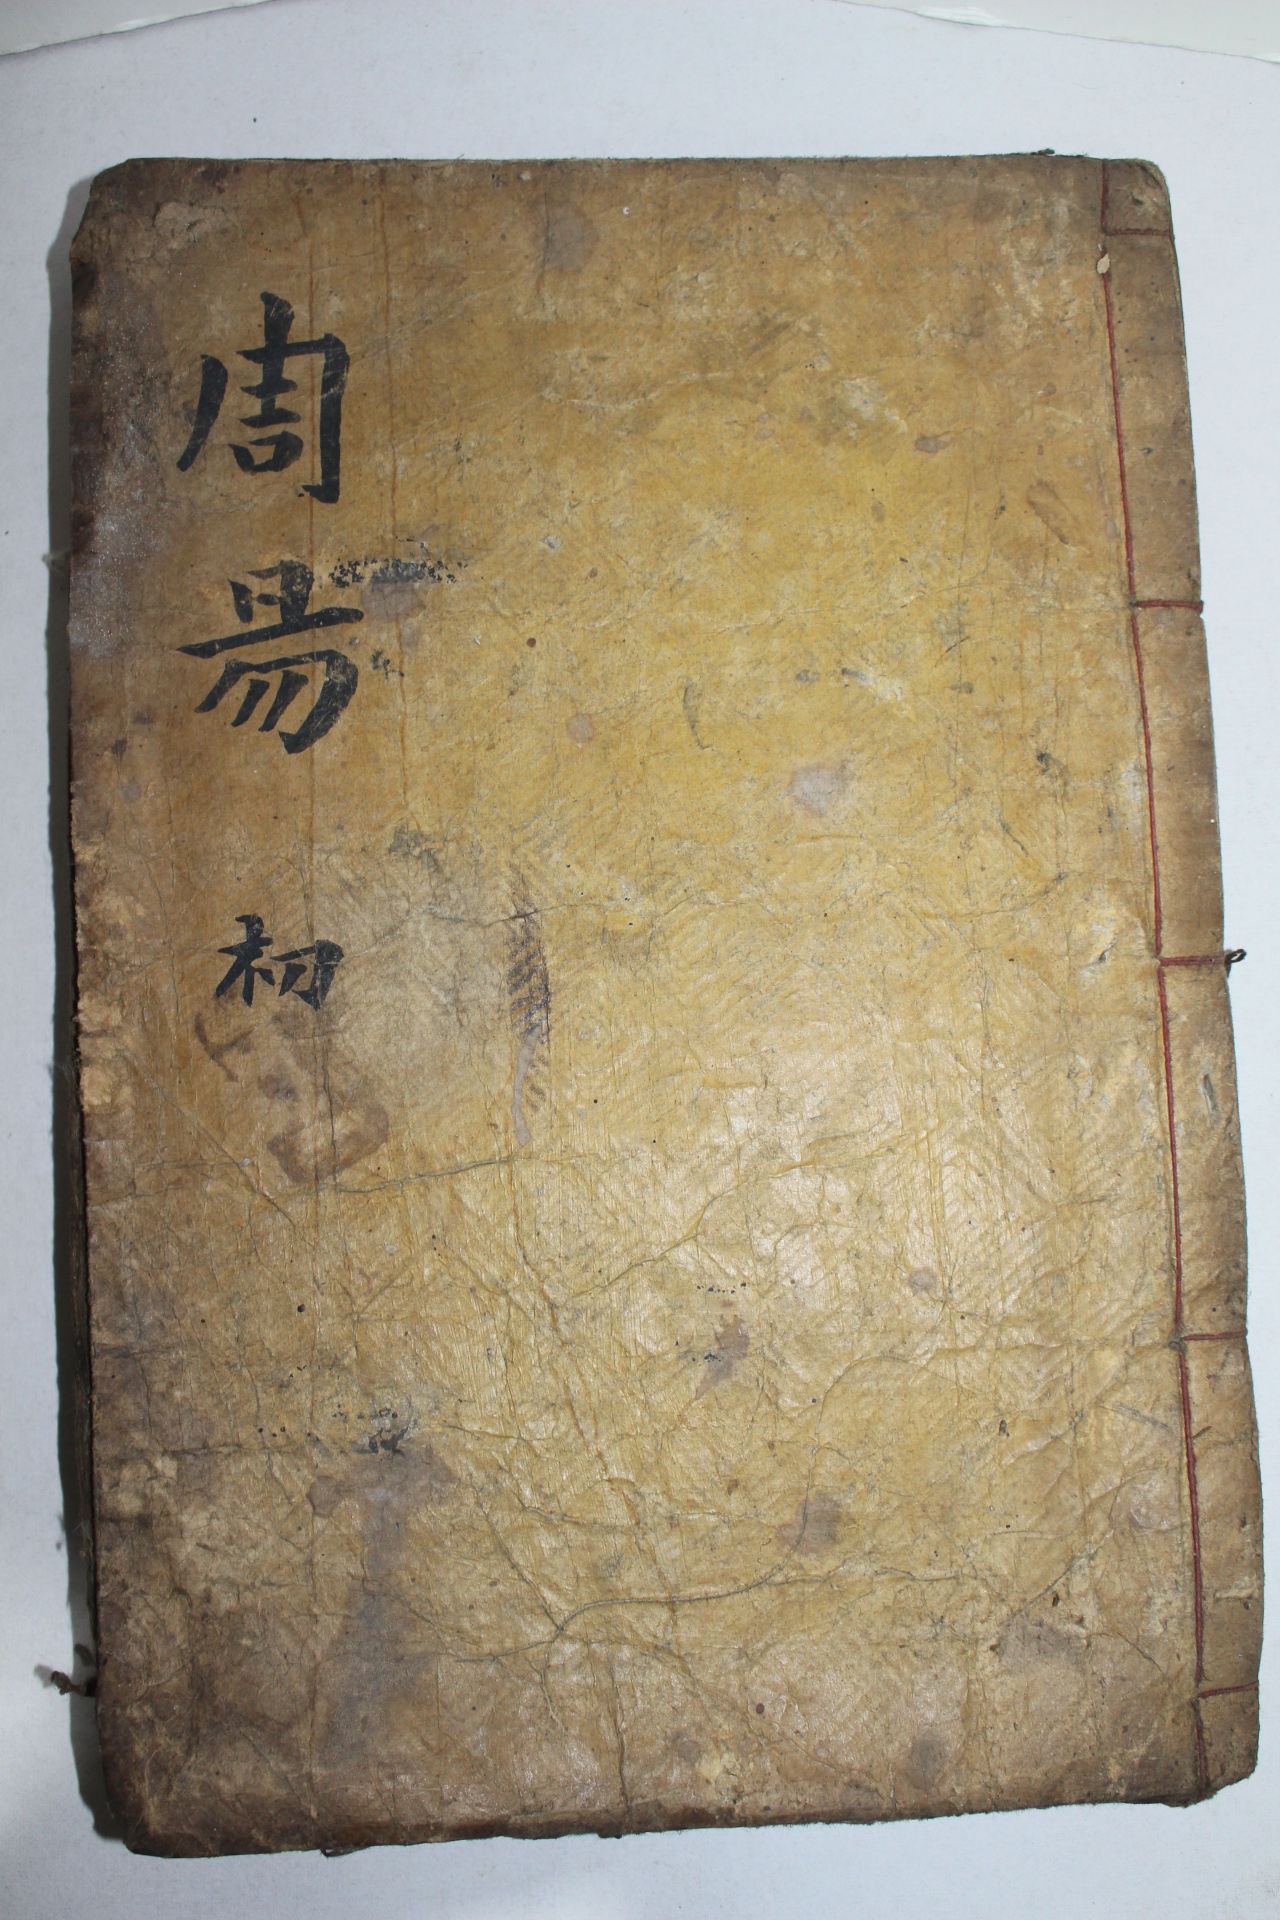 周易 初